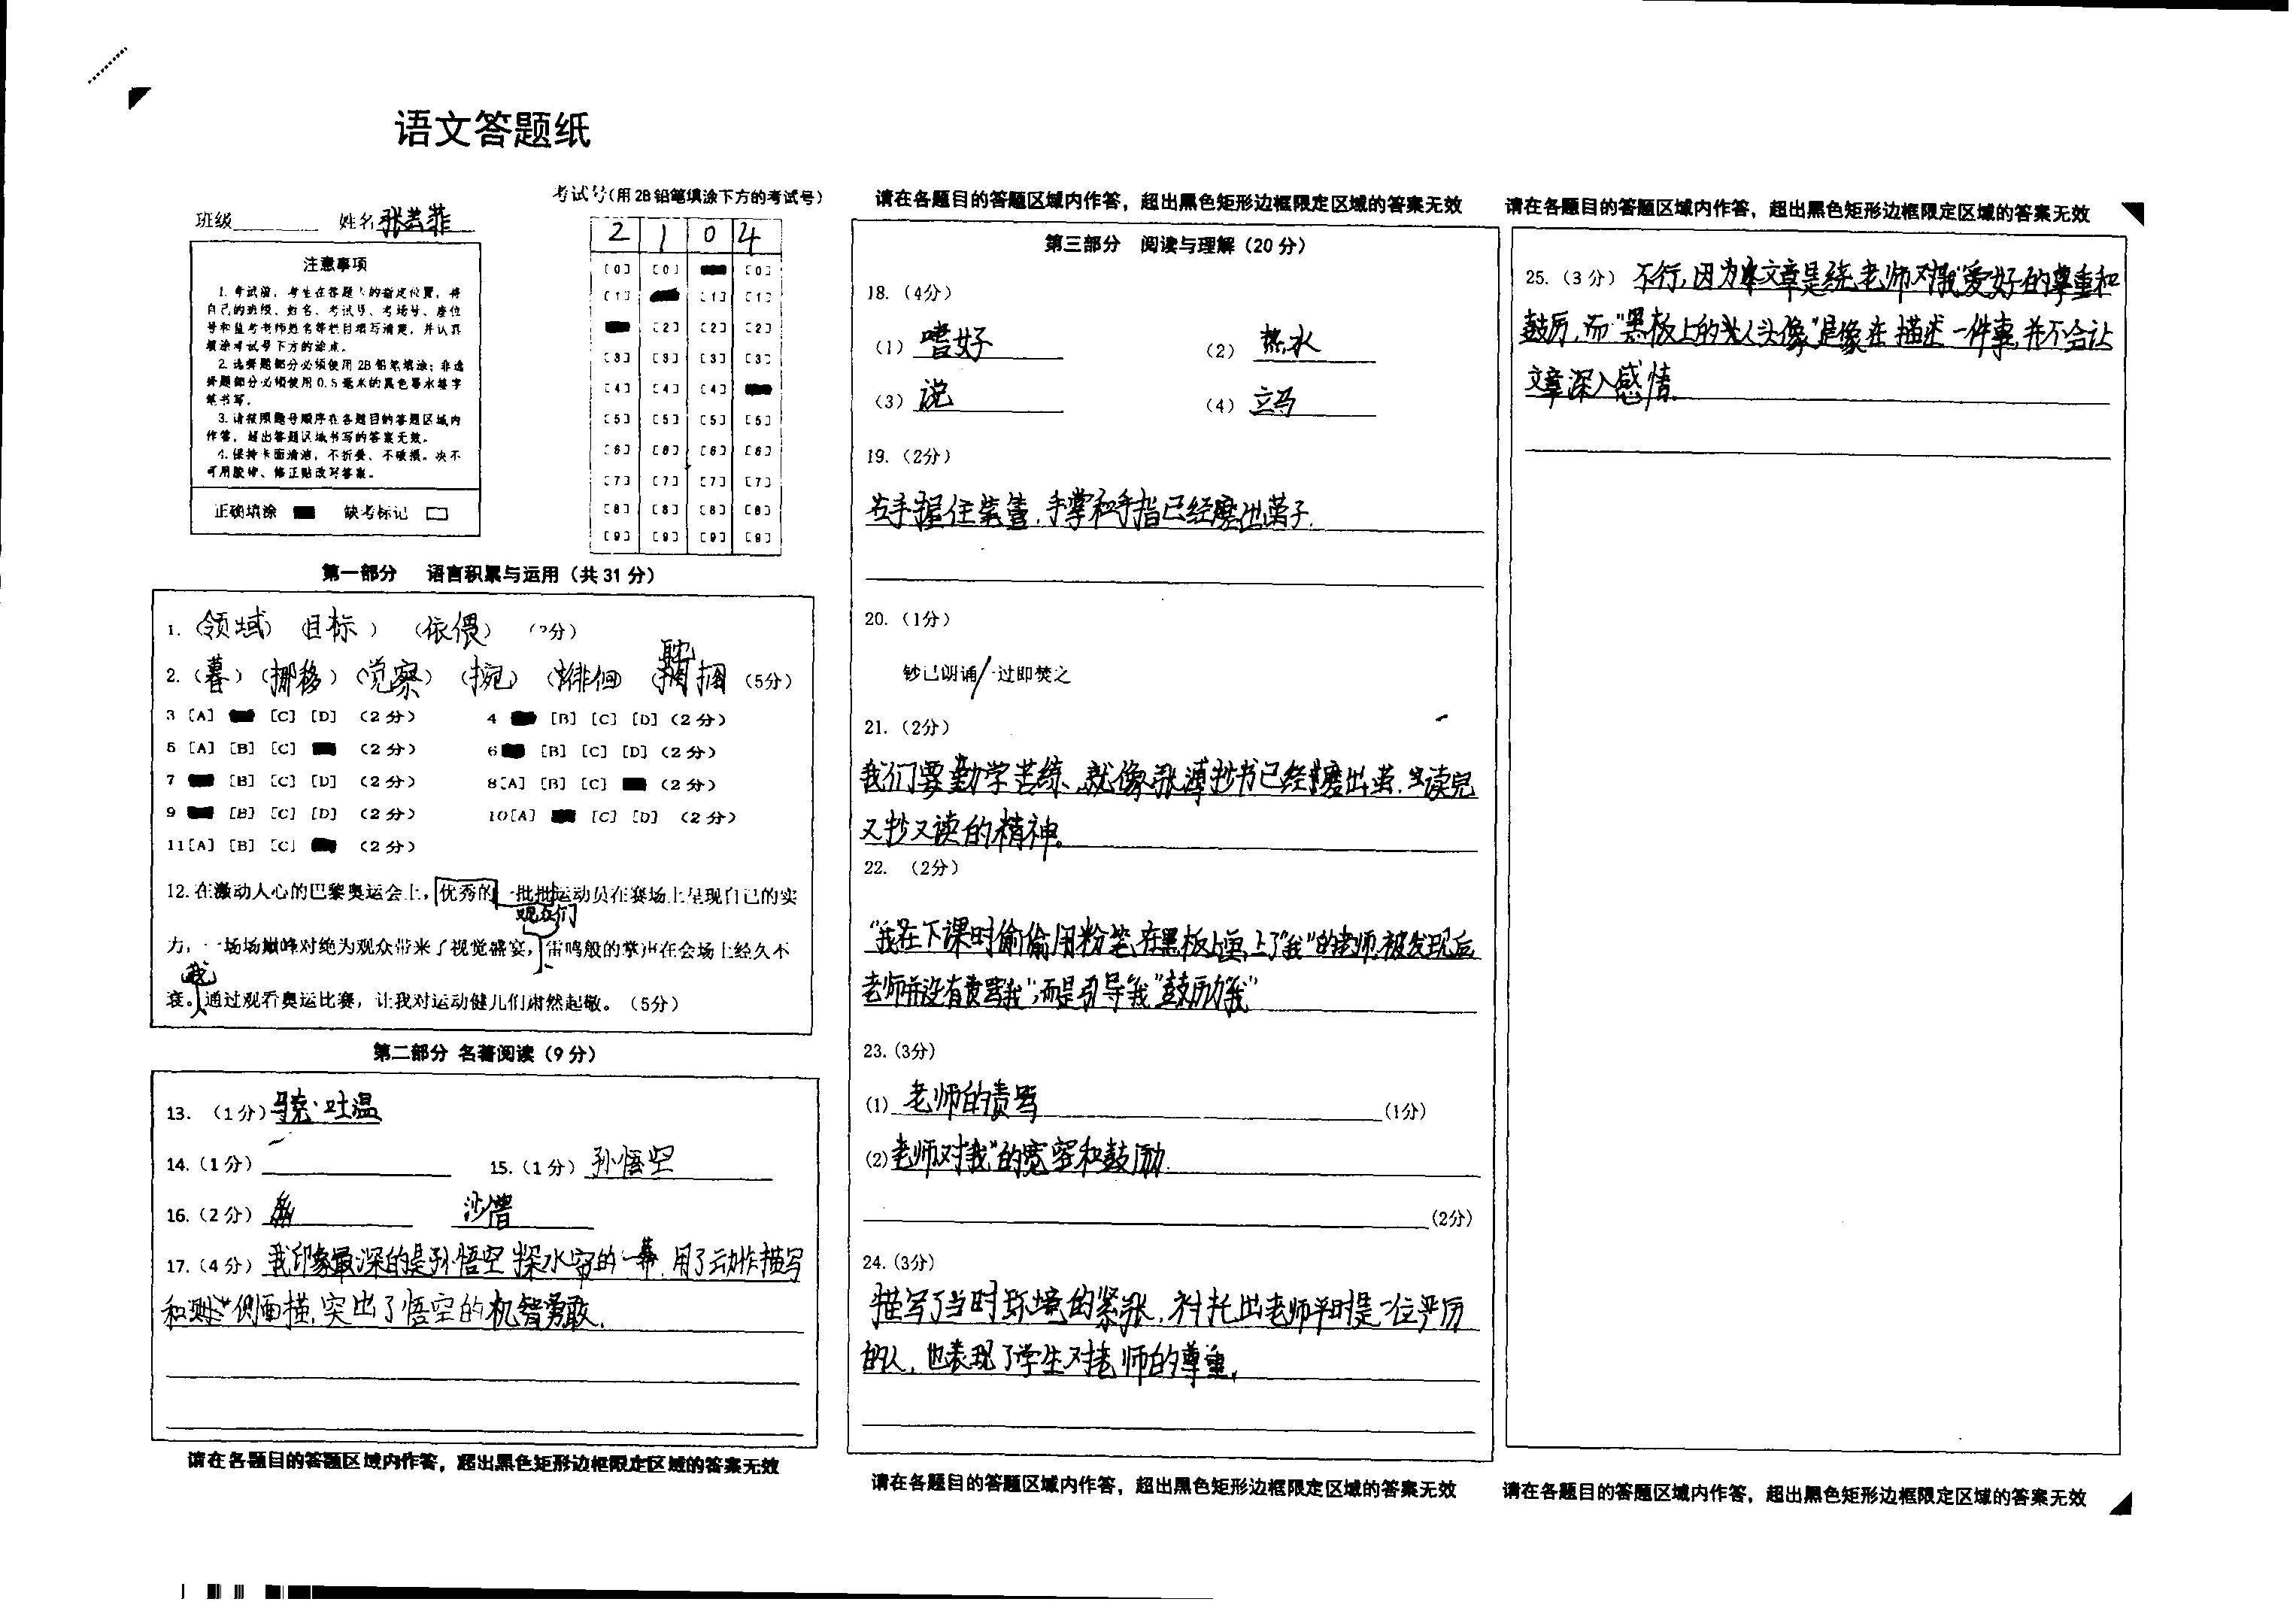 语文答题纸
班级 姓名 张芸菲
考试号(用2B铅笔填涂下方的考试号)
2 1 0 4
注意事项
1. 考试前，考生在答题卡的指定位置，将
自己的班级、姓名、考试号、考场号、座位
号和监考老师姓名等栏目填写清楚，并认真
填涂考试号下方的涂点。
2. 选择题部分必须使用2B铅笔填涂；非选
择题部分必须使用0.5毫米的黑色墨水签字
笔书写。
3. 请按照题号顺序在各题目的答题区域内
作答，超出答题区域书写的答案无效。
4. 保持卡面清洁，不折叠、不破损。决不
可用胶带、修正贴改写答案。
正确填涂 缺考标记
[0] [0] [0]
[1] [1] [1]
[2] [2] [2]
[3] [3] [3] [3]
[4] [4] [4]
[5] [5] [5] [5]
[6] [6] [6] [6]
[7] [7] [7] [7]
[8] [8] [8] [8]
[9] [9] [9] [9]
第一部分 语言积累与运用（共31分）
1. （领域）（目标）（依偎）（2分）
2. （暮）（挪移）（觉察）（捥）（徘徊（ （5分）
3 [A] [C] [D] （2分） 4 [B] [C] [D]（2分）
5 [A] [B] [C] （2分） 6 [B] [C] [D]（2分）
7 [B] [C] [D] （2分） 8[A] [B] [C] （2分）
9 [B] [C] [D] （2分） 10[A] [C] [D] （2分）
11[A] [B] [C] （2分）
12. 在激动人心的巴黎奥运会上，优秀的一批批运动员在赛场上呈现自己的实
观众们
力，一场场巅峰对绝为观众带来了视觉盛宴，雷鸣般的掌声在会场上经久不
我
衰。通过观看奥运比赛，让我对运动健儿们肃然起敬。（5分）
第二部分 名著阅读（9分）
13. （1分）马克·吐温
14.（1分） 15.（1分）孙悟空
16.（2分） 沙僧
17.（4分）我印象最深的是孙悟空探水帘的一幕，用了动作描写
和侧面描，突出了悟空的机智勇敢。
请在各题目的答题区域内作答，超出黑色矩形边框限定区域的答案无效
请在各题目的答题区域内作答，超出黑色矩形边框限定区域的答案无效
第三部分 阅读与理解（20分）
18.（4分）
（1）嗜好 （2）热水
（3）说 （4）立马
19.（2分）
右手握住笔管，手掌和手指已经磨出茧子.
20.（1分）
钞已朗诵/一过即焚之
21.（2分）
我们要勤学苦练、就像张溥抄书已经磨出茧，读完
又抄又读的精神。
22. （2分）
“我在下课时偷偷用粉笔在黑板上画上了“我”的老师，被发现后
老师并没有责骂“我”，而是引导“我”“鼓励我”
23.（3分）
(1) 老师的责骂 (1分)
(2) 老师对“我”的宽容和鼓励.
(2分)
24.（3分）
描写了当时环境的紧张，衬托出老师平时是一位严厉
的人，也表现了学生对老师的尊重。
请在各题目的答题区域内作答，超出黑色矩形边框限定区域的答案无效
请在各题目的答题区域内作答，超出黑色矩形边框限定区域的答案无效
25.（3分） 不行，因为本文章是绕老师对“我”爱好的尊重和
鼓厉，而“黑板上的人头像”是像在描述一件事，并不会让
文章深入感情.
请在各题目的答题区域内作答，超出黑色矩形边框限定区域的答案无效